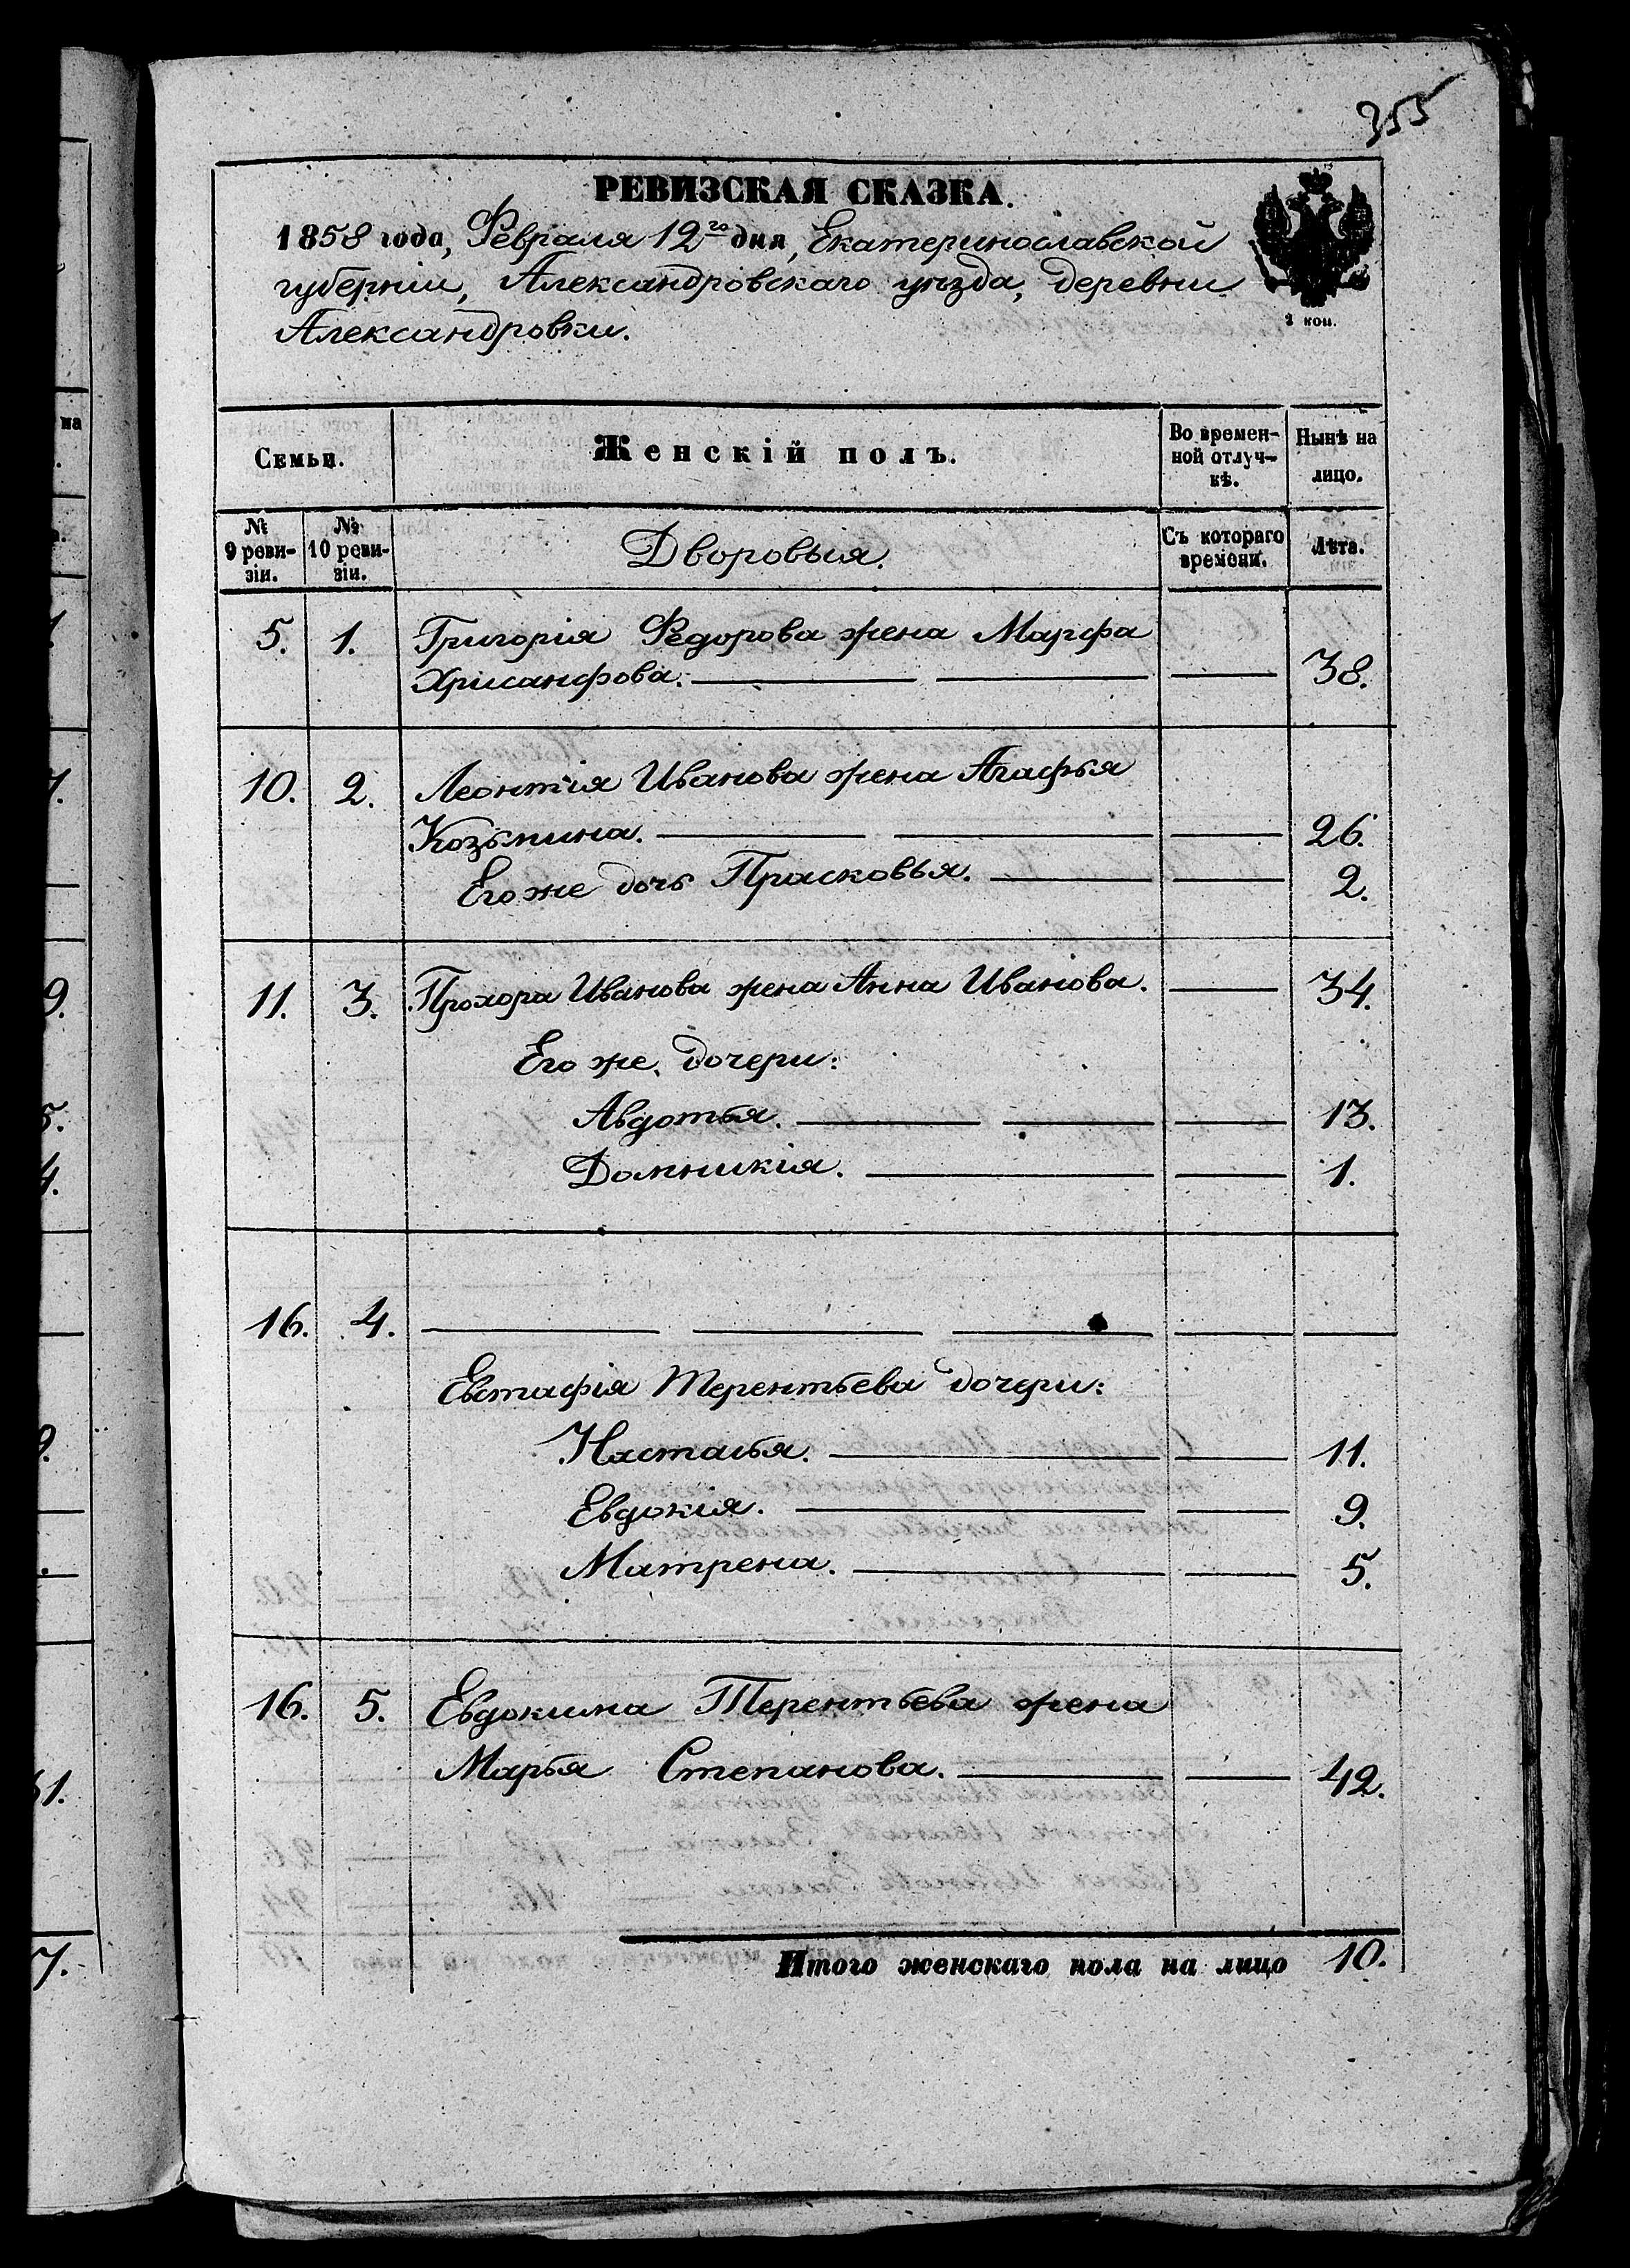 355
РЕВИЗСКАЯ СКАЗКА.
1858 года, Февраля 12го дня, Екатеринославской
губерніи, Александровскаго уѣзда, деревни
Александровки.
2 коп.
Семьи.
Женскій полъ.
Во времен-
ной отлуч-
кѣ.
Нынѣ на
лицо.
№
9 реви-
зіи.
№
10 реви-
зіи.
Дворовыя.
Съ котораго
времени.
Лѣта.
5. 1. Григорія Федорова жена Марфа
Хрисанфова. 38.
10. 2. Леонтія Иванова жена Агафья
Козьмина. 26.
Его же дочь Прасковья. 2.
11. 3. Прохора Иванова жена Анна Иванова. 34.
Его же дочери:
Авдотья. 13.
Домникія. 1.
16. 4.
Евстафія Терентьева дочери:
Настасья. 11.
Евдокія. 9.
Матрена. 5.
16. 5. Евдокима Терентьева жена
Марья Степанова. 42.
Итого женскаго пола на лицо 10.